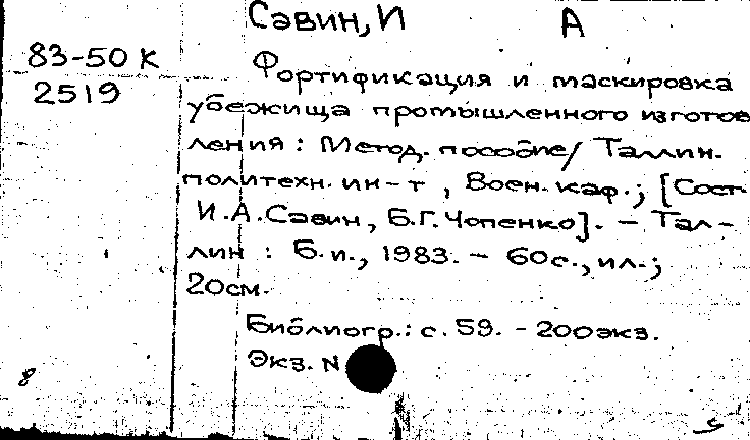 Савин, И А
83-50 К
2519
Фортификация и маскировка
убежища промышленного изготов
ления : Метод. пособие / Таллин.
политехн. ин-т , Воен. каф.; [Сост.
И.А.Савин, Б.Г.Чопенко]. - Тал-
лин : Б.и., 1983. - 60с., ил.;
20см.
Библиогр.: с. 59. - 200экз.
Экз. N
8